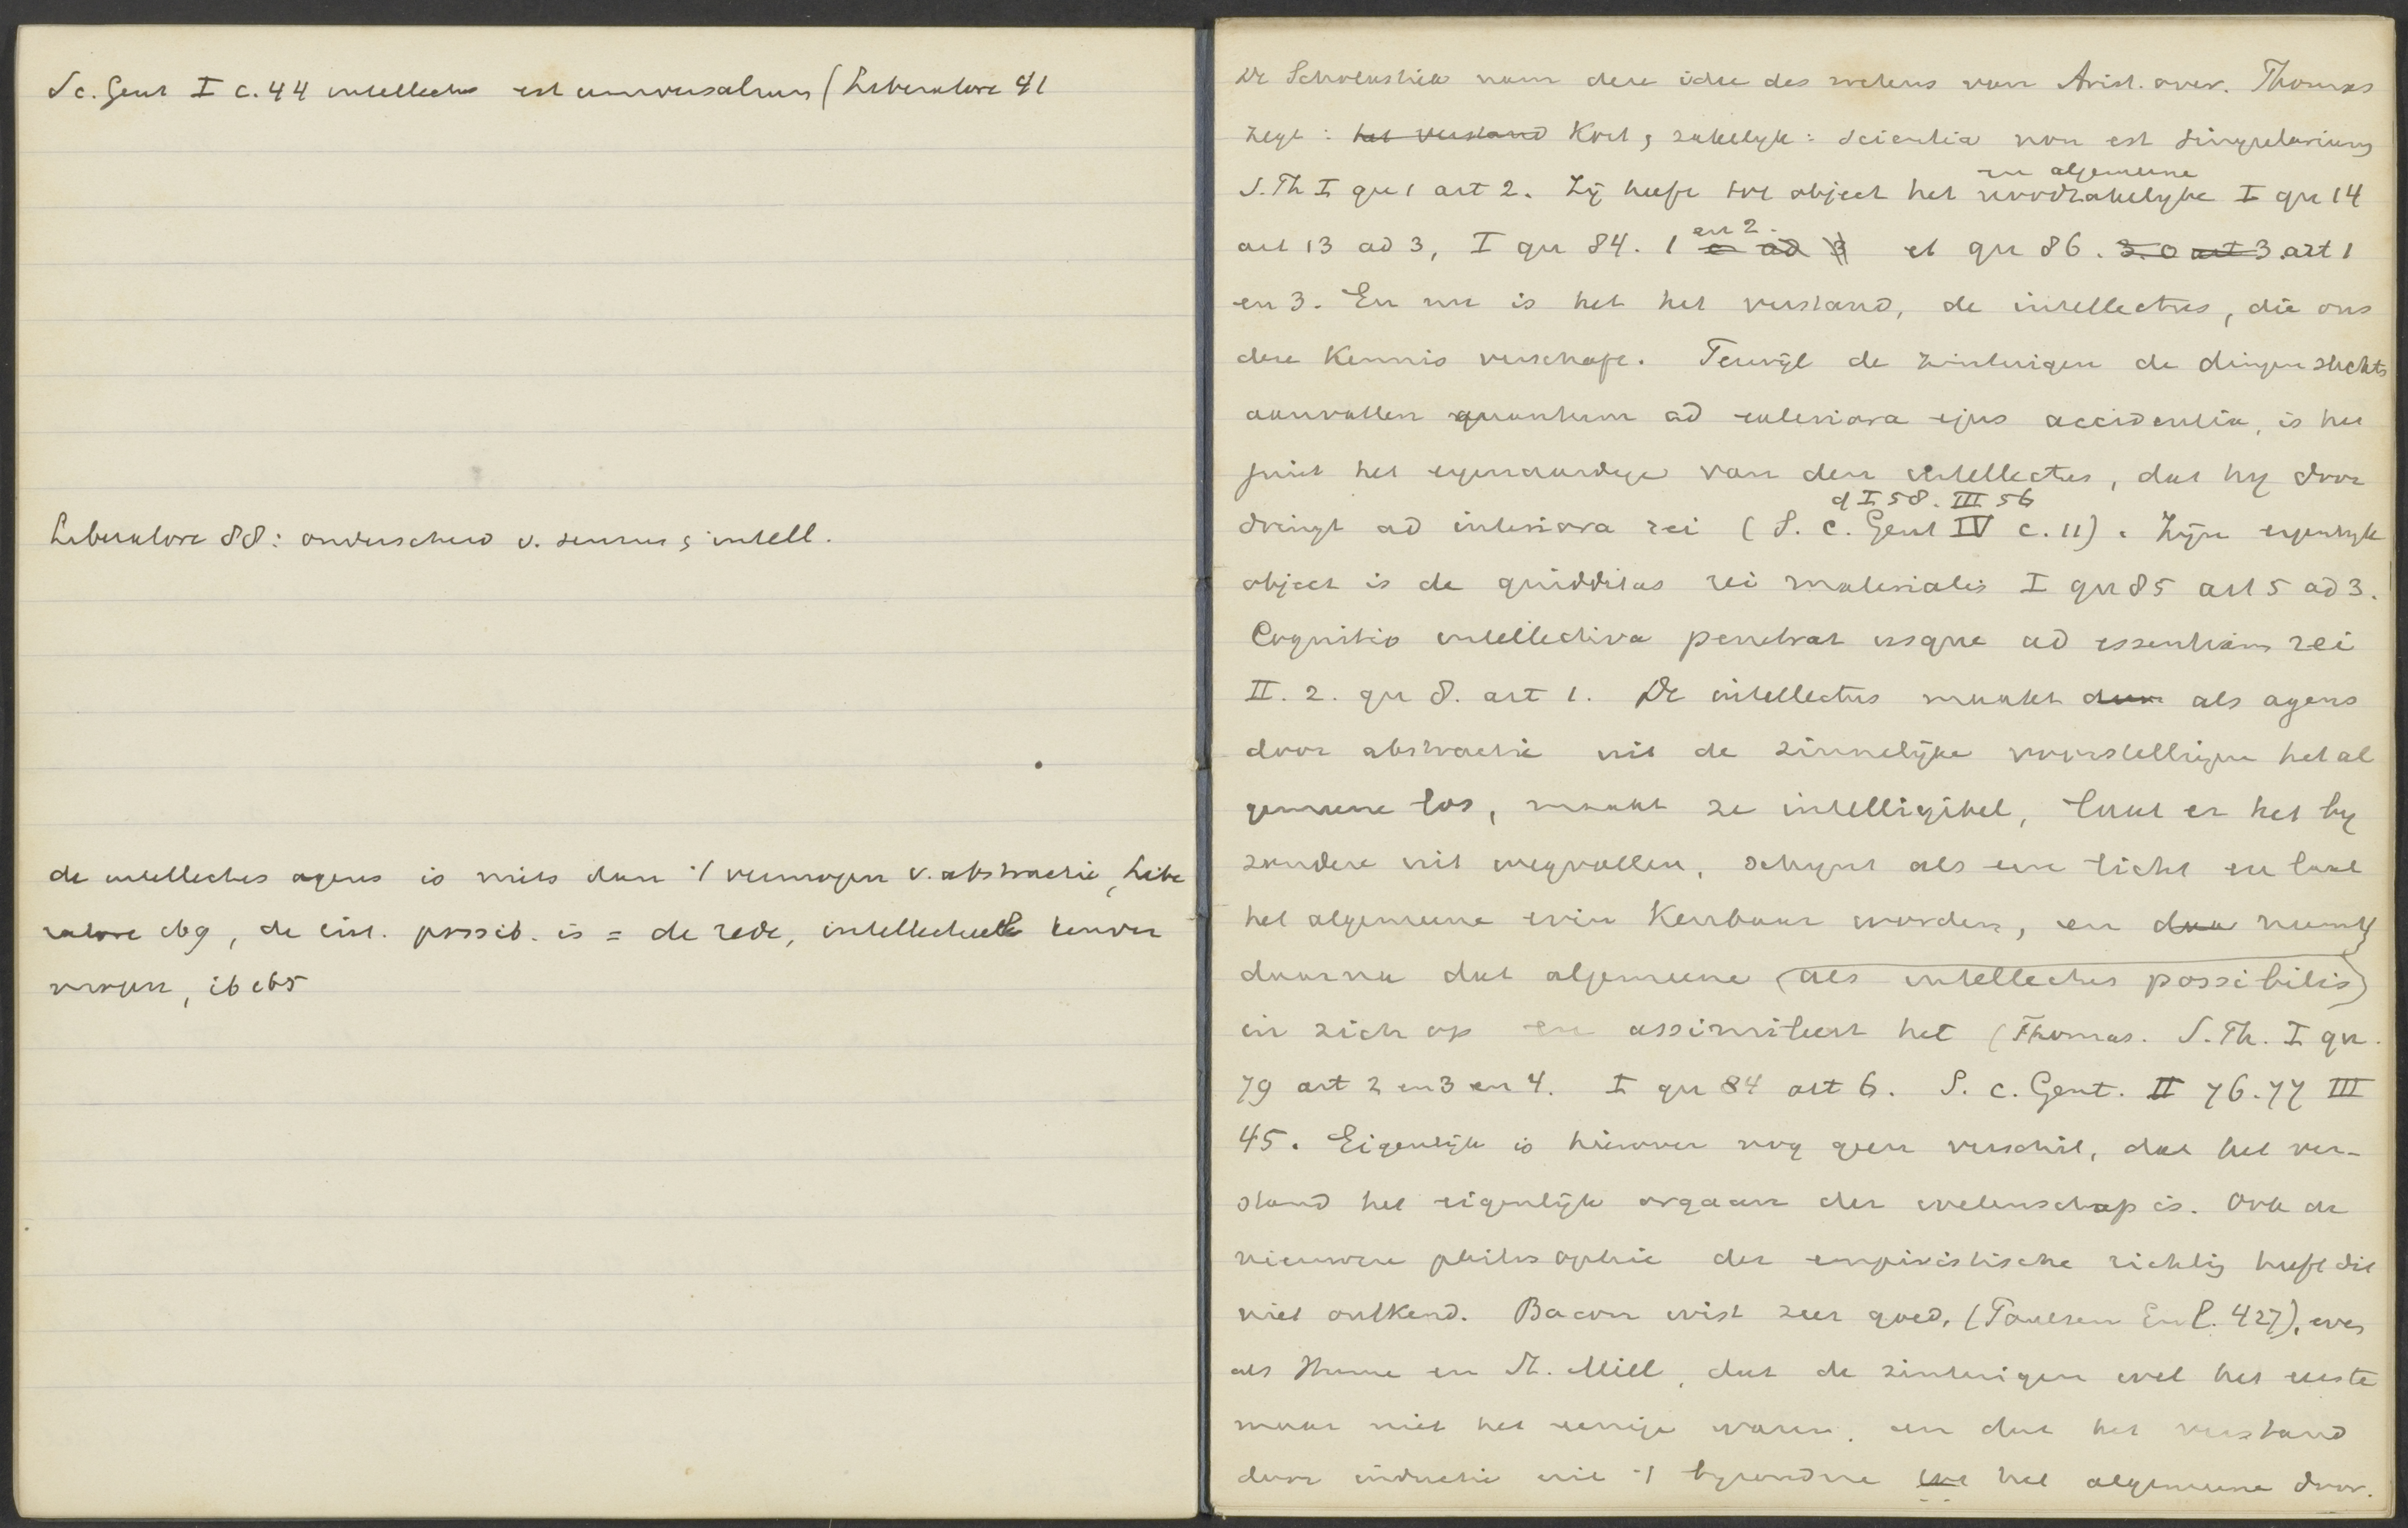 S c. Gent I c. 44 intellectus est universalium (Liberatore 41
Liberatore 88: onderscheid v. sensus & intell.
de intellectus agens is niets dan 't vermogen v. abstractie, Libe
ratore 169, de int. possib. is = de rede, intellectueele kenver
mogen, ib 165
De Scholastiek nam deze idee des wetens van Arist. over. Thomas
zegt: het verstand Kort & zakelyk: scientia non est singularium
S. Th I qu 1 art 2. Zij heeft tot object het noodzakelyke en algemeene I qu 14
art 13 ad 3, I qu 84. 1 en 2. et qu 86. art 1
en 3. En nu is het het verstand, de intellectus, die ons
deze Kennis verschaft. Terwijl de zintuigen de dingen slechts
aanvatten quantum ad exteriora ejus accidentia, is het
juist het eigenaardige van den intellectus, dat hy door
dringt ad interiora rei (S. c. Gent IV c. 11) cf I 58. III 56. Zijn eigenlyk
object is de quidditas rei materialis I qu 85 art 5 ad 3.
Cognitio intellectiva penetrat usque ad essentiam rei
II. 2. qu 8. art 1. De intellectus maakt dan als agens
door abstractie uit de zinnelijke voorstellingen het al
gemeene los, maakt ze intelligibel, laat er het by
zondere uit wegvallen, schynt als een licht en laat
het algemeene erin Kenbaar worden, en neemt
daarna dat algemeene (als intellectus possibilis)
in zich op en assimileert het (Thomas. S. Th. I qu.
79 art 2 en 3 en 4. I qu 84 art 6. S. c. Gent. II 76. 77 III
45. Eigenlijk is hierover nog geen verschil, dat het ver-
stand het eigenlijk orgaan der wetenschap is. Ook de
nieuwere philosophie der empiristische richting heeft dit
niet ontkend. Bacon wist zeer goed, (Paulsen Einl. 427), even
als Hume en St. Mill, dat de zintuigen wel het eerste
maar niet het eenige waren, en dat het verstand
door inductie uit 't byzondere tot het algemeene door.